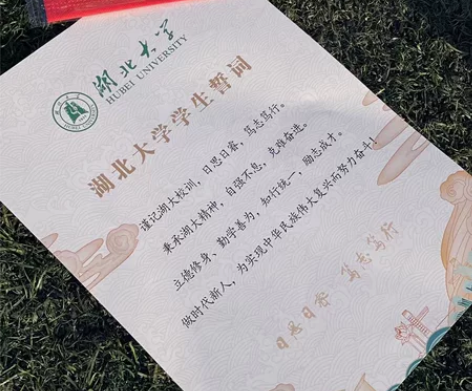 湖北大学
HUBEI UNIVERSITY
湖北大学学生誓词
谨记湖大校训，日思日睿，笃志笃行。
秉承湖大精神，自强不息，克难奋进。
立德修身、勤学善为，知行统一，励志成才。
做时代新人，为实现中华民族伟大复兴而努力奋斗！
日思日睿 笃志笃行